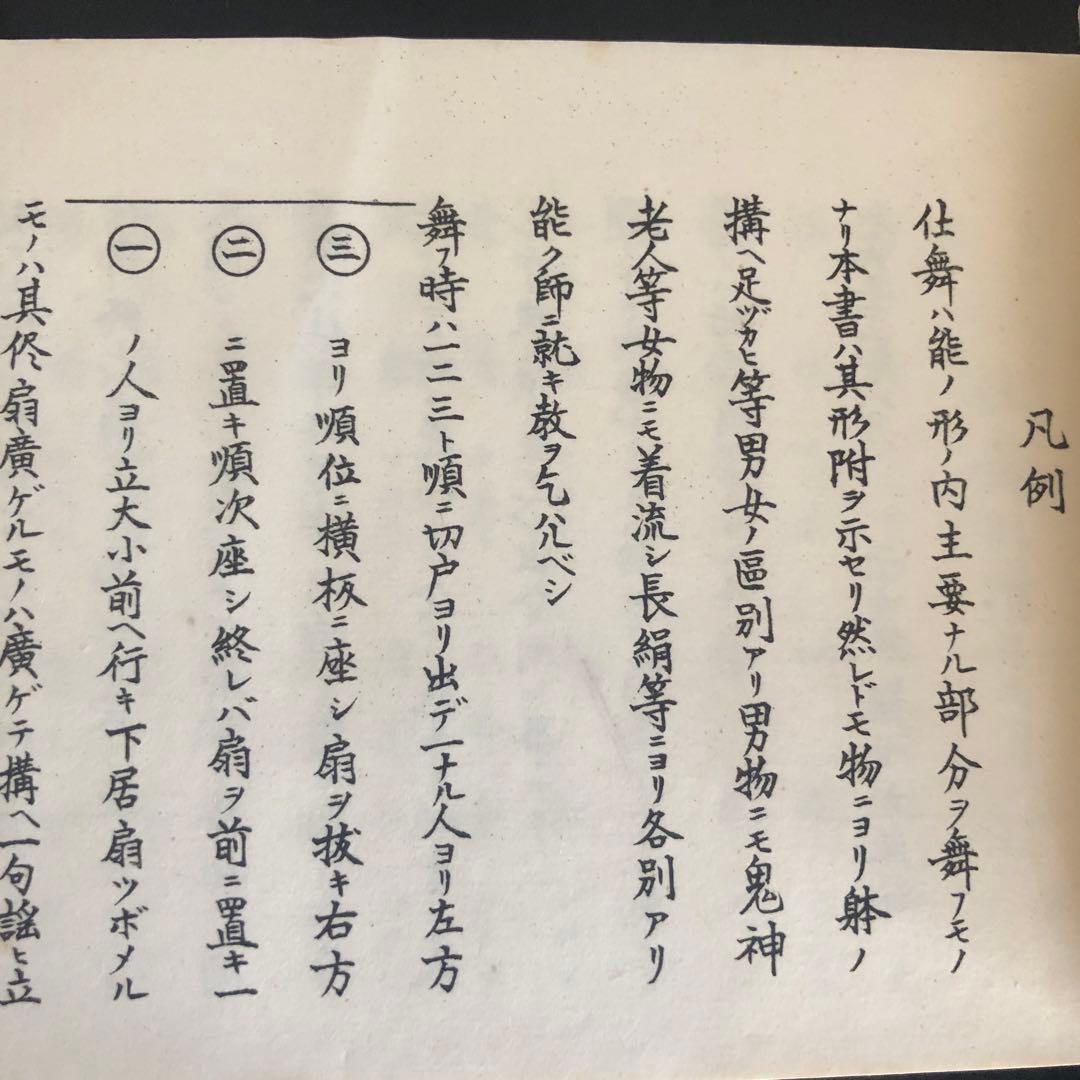 凡例
仕舞ハ能ノ形ノ内主要ナル部分ヲ舞フモノ
ナリ本書ハ其形附ヲ示セリ然レドモ物ニヨリ躰ノ
搆ヘ足ヅカヒ等男女ノ區別アリ男物ニモ鬼神
老人等女物ニモ着流シ長絹等ニヨリ各別アリ
能ク師ニ就キ教ヲ乞ハルベシ
舞フ時ハ一二三ト順ニ切戸ヨリ出デ一ナル人ヨリ左方
㊂ヨリ順位ニ横板ニ座シ扇ヲ抜キ右方
㊁ニ置キ順次座シ終レバ扇ヲ前ニ置キ一
㊀ノ人ヨリ立大小前ヘ行キ下居扇ツボメル
モノハ其侭扇廣ゲルモノハ廣ゲテ搆ヘ一句謡ヒ立